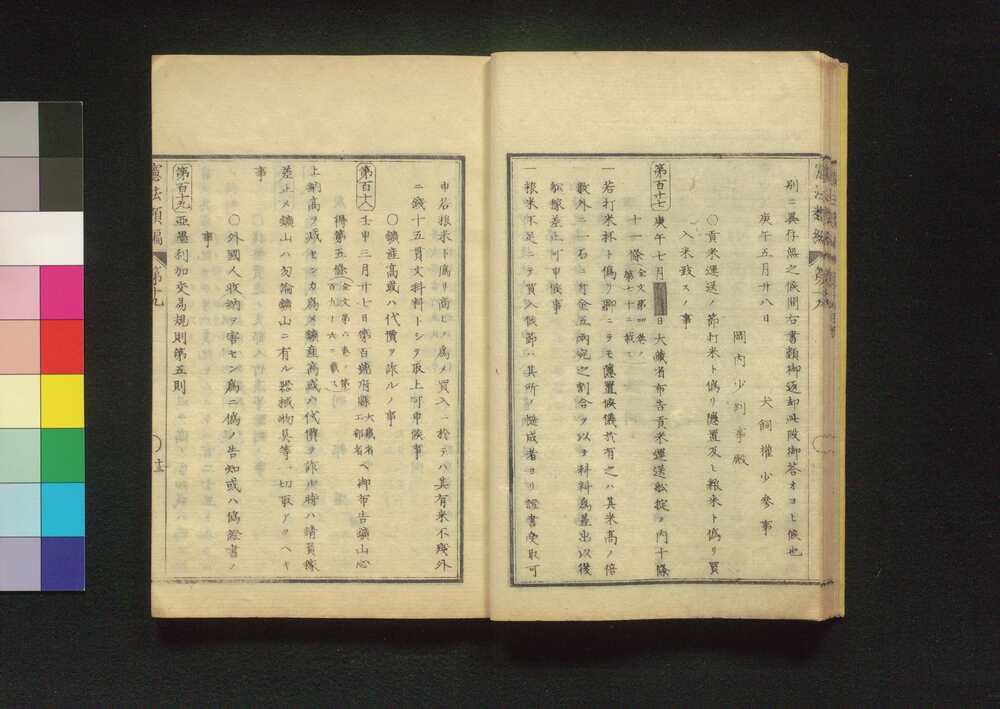 別ニ異存無之候間右書類御返却此段御答オヨヒ候也
庚午五月廿八日
犬飼權少參事
岡内少判事殿
○貢米運送ノ節打米ト偽リ隱置及ヒ粮米ト偽リ買
入米致スノ事
第百十七
庚午七月
日大藏省布告貢米運送船掟ノ内十條
十一條
全文第四巻ノ
第七十二ニ載ス
一若打米抔ト偽リ聊ニテモ隱置候儀於有之ハ其米高ノ倍
數外ニ一石ニ付金五兩宛之割合ヲ以テ科料為差出以後
船稼差止可申候事
一粮米不足ニテ買入候節ハ其所ノ慥成者ヨリ證書受取可
申若粮米ト偽リ商ヒノ為メ買入ニ於テハ其有米不殘外
ニ錢十五貫文科料トシテ取上可申候事
○鑛産高或ハ代價ヲ詐ルノ事
第百十八
壬申三月廿七日第百號府縣
大藏省
工部省
ヘ御布告鑛山心
得第五條
全文第六巻ノ第
百九十六ニ載ス
上納高ヲ減セシカ為メ鑛産高或ハ代價ヲ詐ル時ハ請負稼
差止メ鑛山ハ勿論鑛山ニ有ル器械物具等一切取アクヘキ
事
○外國人收納ヲ害セン為ニ偽ノ告知或ハ偽證書ノ
事
第百十九
亞墨利加交易規則第五則
憲法類編
第十九
十三